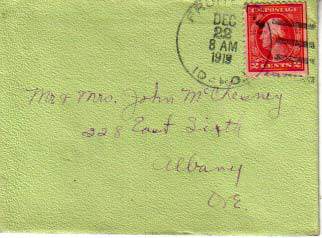 DEC
22
8 AM
IDAHO
U.S. POSTAGE
2 CENTS 2
Mr & Mrs. John McChesney
228 East Sixth
Albany
ORE.